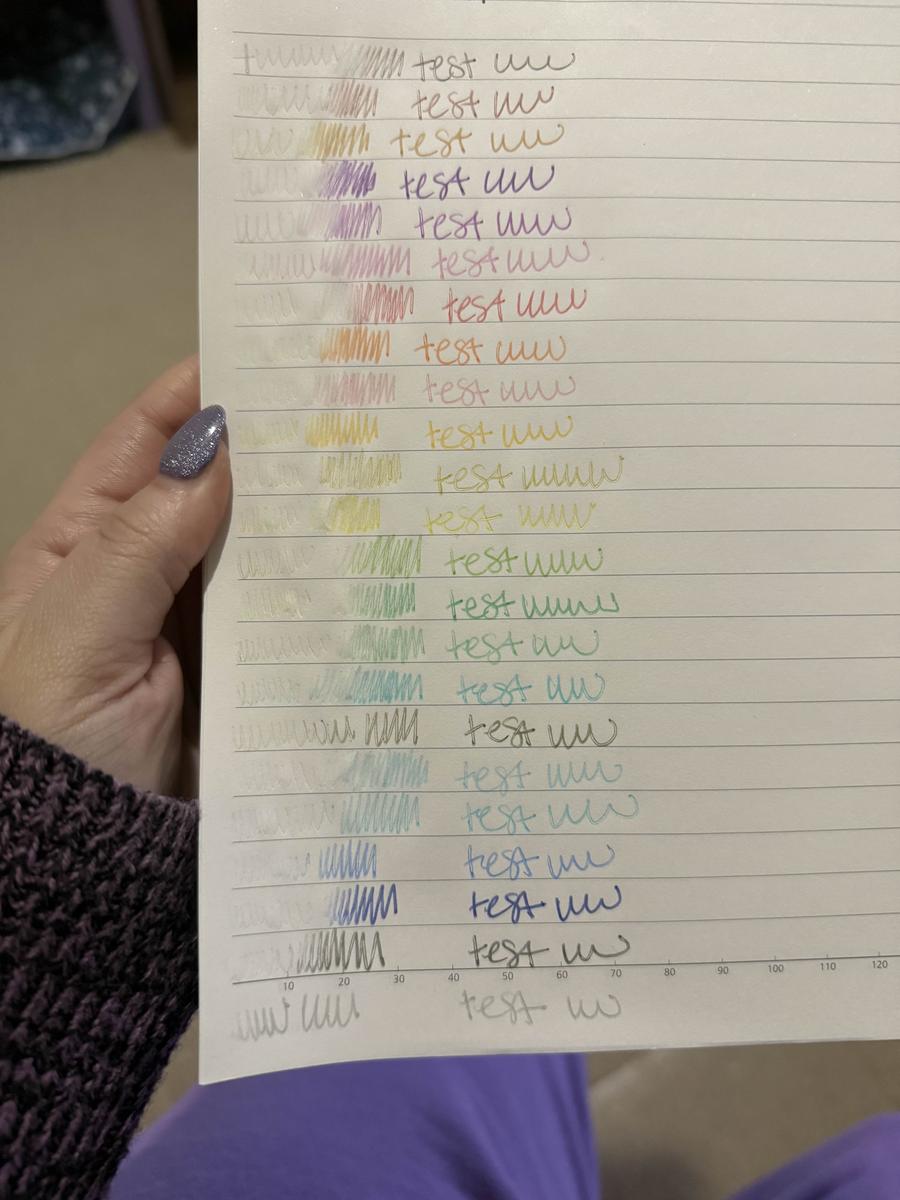 test
test
test
test
test
test
test
test
test
test
test
test
test
test
test
test
test
test
test
test
test
test
10 20 30 40 50 60 70 80 90 100 110 120
test